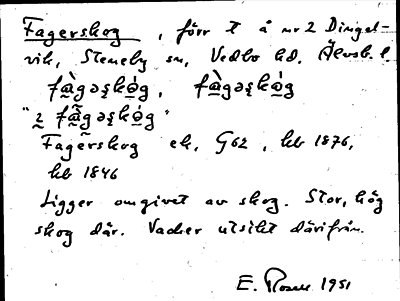 Fagerskog, förr t å nr 2 Dingel-
vik, Steneby sn, Vedbo hd, Älvsb. l.
Fagerskog ek, G62, hb 1876,
hb 1846
Ligger omgivet av skog. Stor, hög
skog där. Vacker utsikt därifrån.
E. Rosell 1951